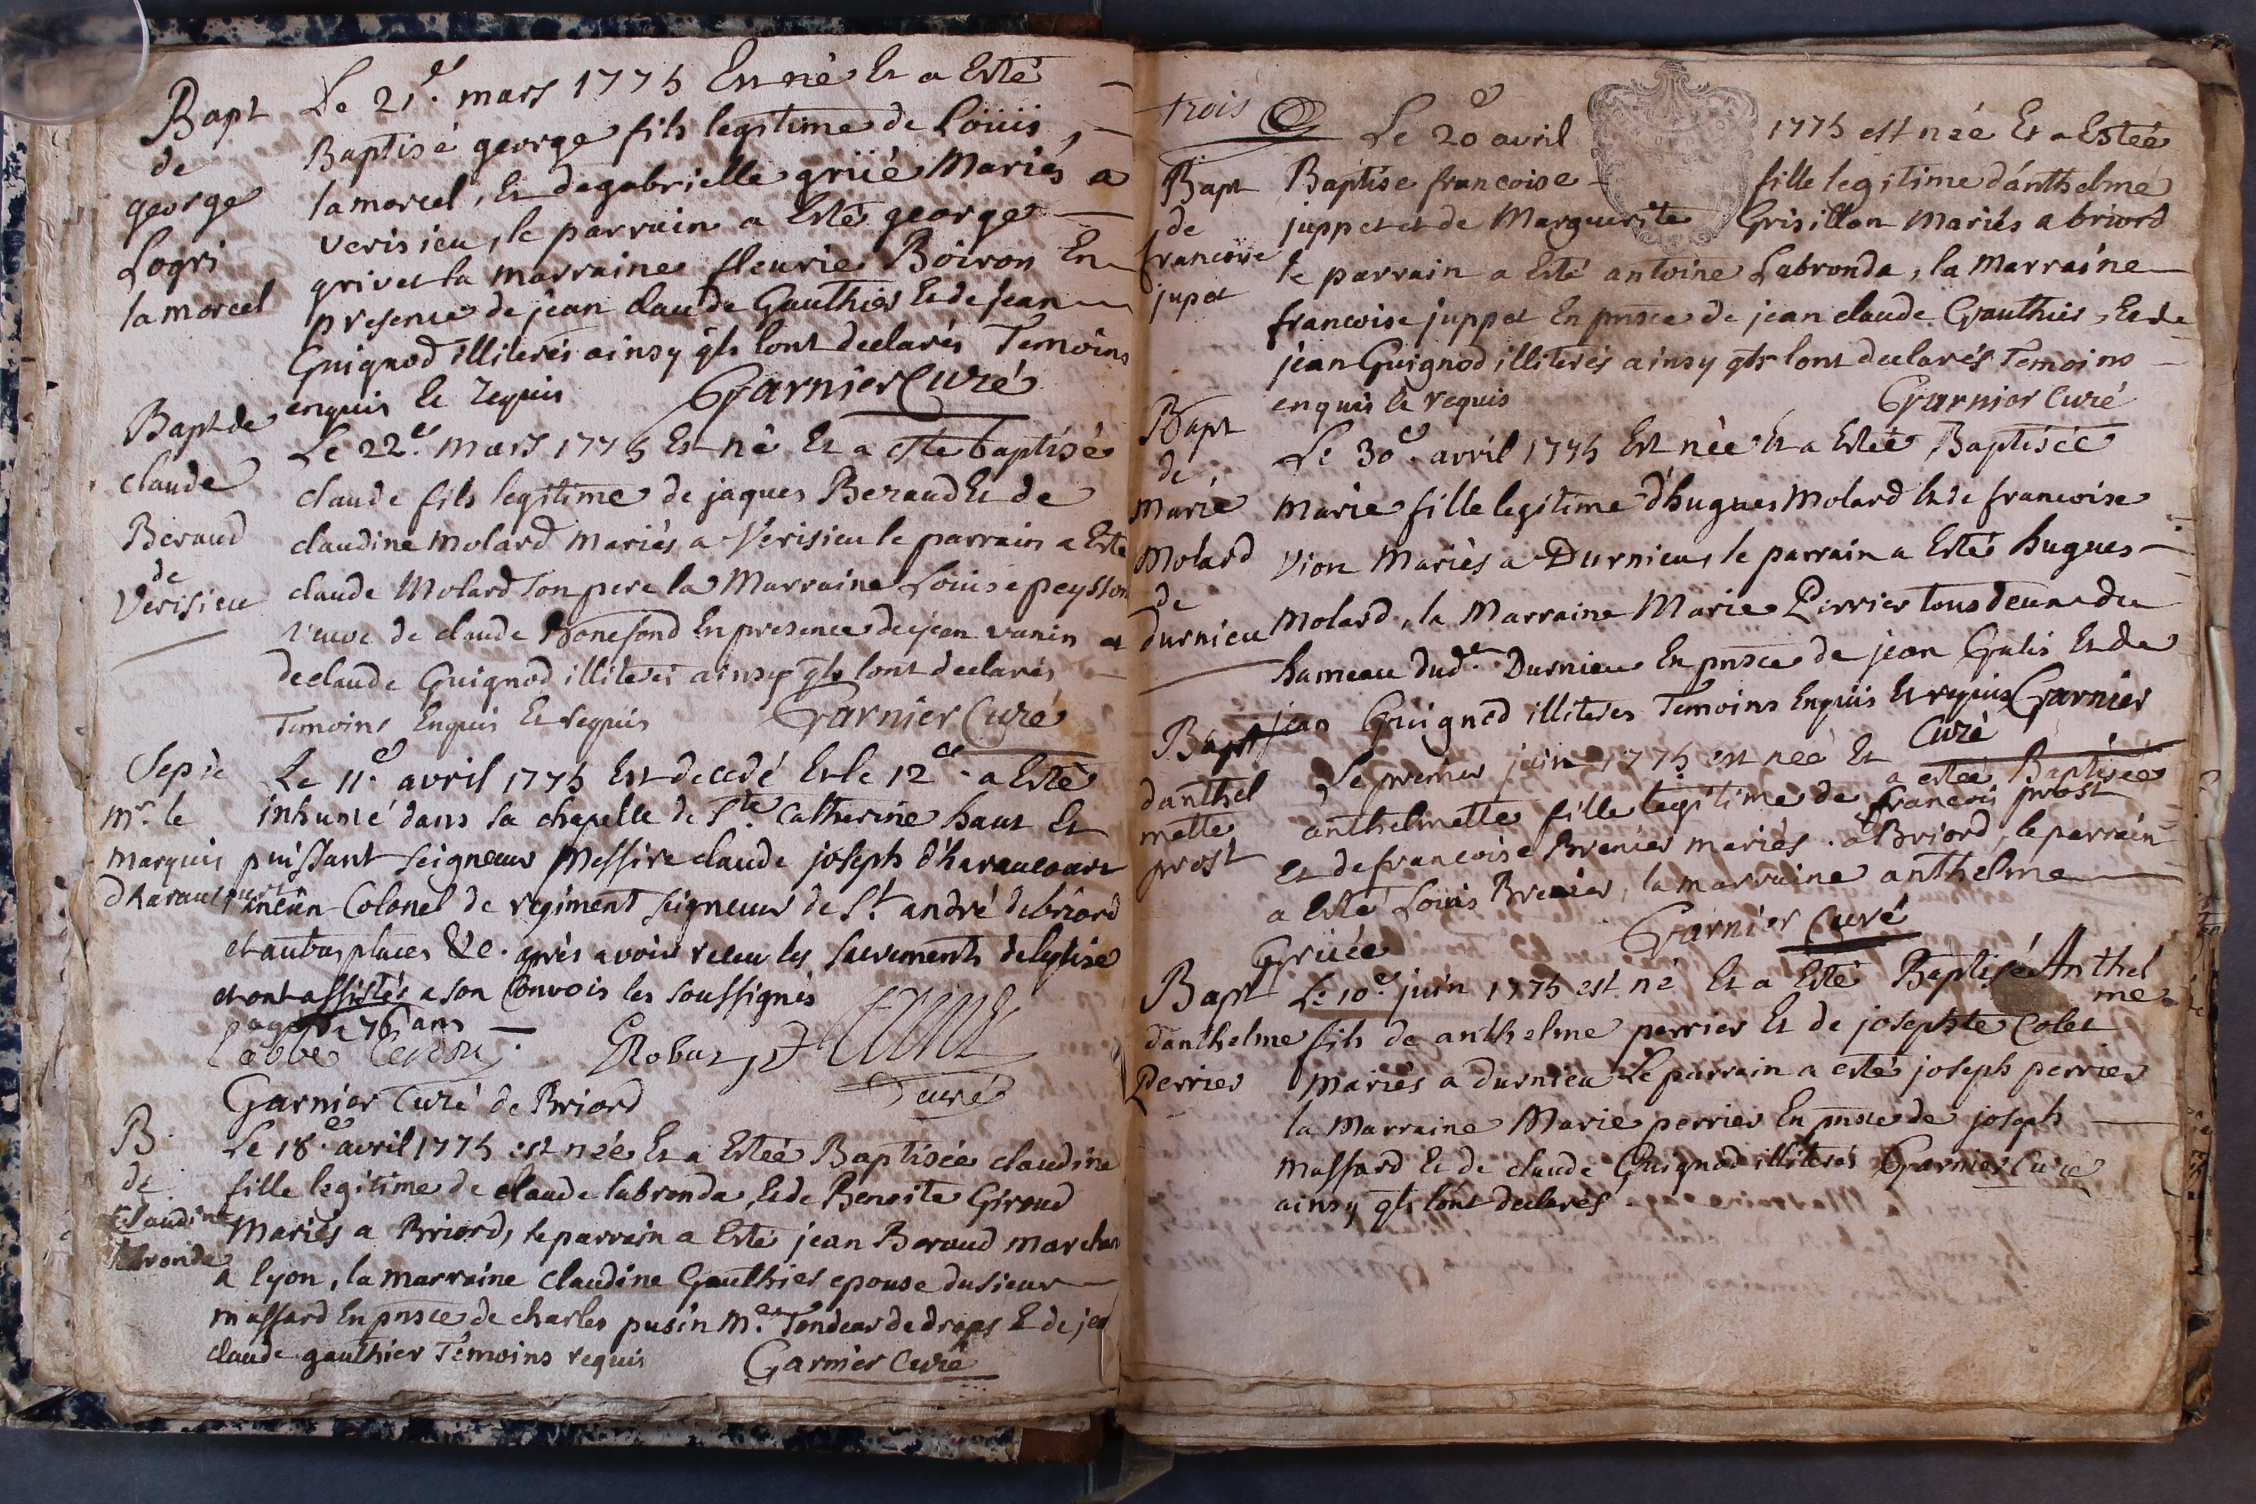 Bapt
de
george
Logri
lamorcel
Le 21.e mars 1775 Est né Et a Esté
Baptisé george fils legitime de Loüis
lamorcel, Et de gabrielle grüé Mariés a
verisieu, le parrain a Esté george
grivet la marraine fleurie Boiron En
presence de jean claude Gauthier Et de jean
Guignod illiterés ainsy qls lont declarés Temoins
enquis Et requis Garnier Curé
Bapt de
claude
Beraud
de
Verisieu
Le 22.e mars 1775 Est né Et a este baptisé
claude fils legitime de jaques Beraud Et de
claudine molard mariés a Verisieu le parrain a Esté
claude Molard son pere la Marraine Louise peysson
veuve de claude Bonefond En presence de jean vanin et
de claude Guignod illiterés ainsy qls lont declarés
Temoins Enquis Et requis Garnier Curé
Sep de
mr. le
marquis
dharaucourt
Le 11.e avril 1775 Est decedé Et le 12.e a Esté
inhumé dans sa chapelle de Ste. Catherine haut Et
puissant seigneur Messire claude joseph d'haraucourt
ancien Colonel de regiment seigneur de St. andré de briord
et autres places &c. après avoir receu les sacrements de leglise
et ont assistés a son Convois les soussignés
agé de 76 ans
Labbé
Robat,
curé
Garnier Curé de Briord
B.
de
Claudine
labronda
Le 18.e avril 1775 est née Et a Esteé Baptisée claudine
fille legitime de claude labronda, Et de Benoite Giroud
Mariés a Briord, le parrain a Esté jean Beraud marchan
a lyon, la marraine claudine Gauthier epouse du sieur
massard En pnsce de charles pusin m.e Tondeur de draps Et de jea
claude gauthier Témoins requis Garnier Curé
trois
Bapt
de
francoise
jupet
Le 20 avril 1775 est née Et a Esteé
Baptise francoise fille legitime d'anthelme
juppet et de Marguerite Grisillon Mariés a briord
le parrain a Esté antoine Labronda, la Marraine
francoise juppet En pnsce de jean claude Gauthier, Et de
jean Guignod illiterés ainsy qls lont declarés Temoins
enquis Et requis Garnier Curé
Bapt
de
Marie
Molard
de
durnieu
Le 30.e avril 1775 Est née Et a Esteé Baptisée
Marie fille legitime d'hugues Molard Et de francoise
Vion Mariés a Durnieu, le parrain a Esté hugues
Molard, la Marraine Marie Perrier tous deux du
hameau dud.t Durnieu En pnsce de jean Galis Et de
jean Guignod illiteres Temoins Enquis Et requis Garnier
Curé
Bapt
danthel
mette
prost
Le premier juin 1775 est née Et a esteé Baptisée
anthelmette fille legitime de francois prost
Et de francoise Brenier mariés a Briord, le parrain
a Esté Louis Brenier, la marraine anthelme
Grüée Garnier Curé
Bapt
danthelme
Perrier
Le 10.e juin 1775 est né Et a Esté Baptisé Anthel
me
fils de anthelme perrier Et de josephte Colet
Mariés a durnieu Le parrain a esté joseph perrier
la Marraine Marie perrier En pnsce de joseph
Massard Et de claude Guignod illiterés Garnier Curé
ainsy qls lont declarés